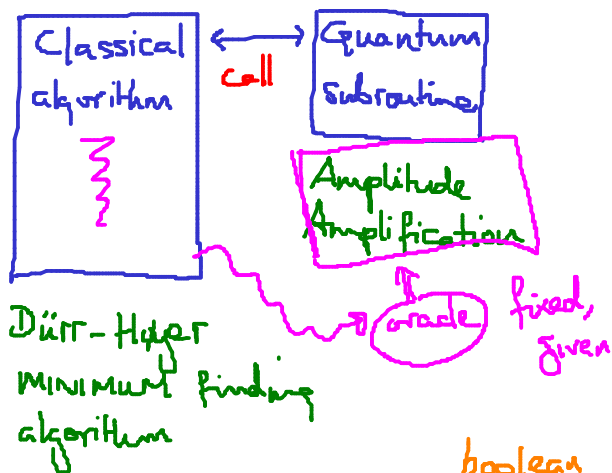 Classical
algorithm
call
Quantum
subroutine
Amplitude
Amplification
oracle
fixed,
given
Dürr-Høyer
minimum finding
algorithm
boolean